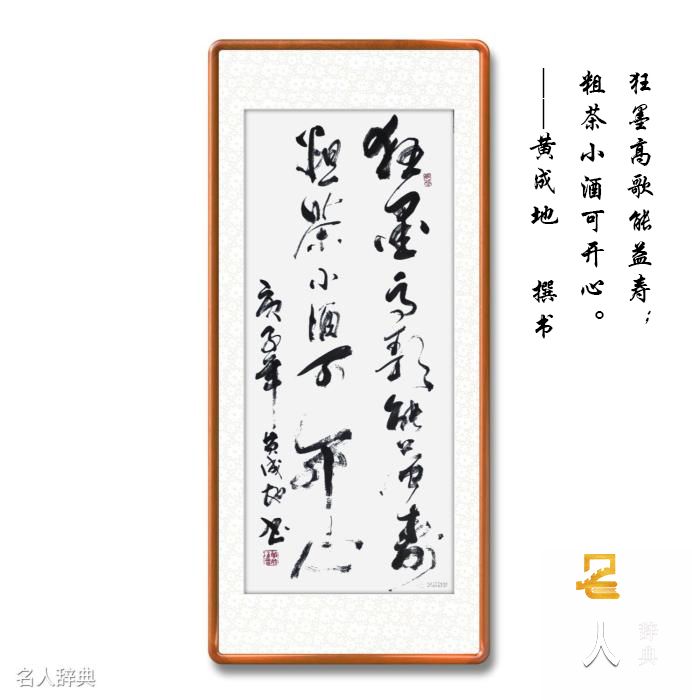 狂墨高歌能益寿；
粗茶小酒可开心。
——黄成地 撰书
狂墨高歌能益寿
粗茶小酒可开心
庚子年 黄成地书
名人辞典
名人辞典